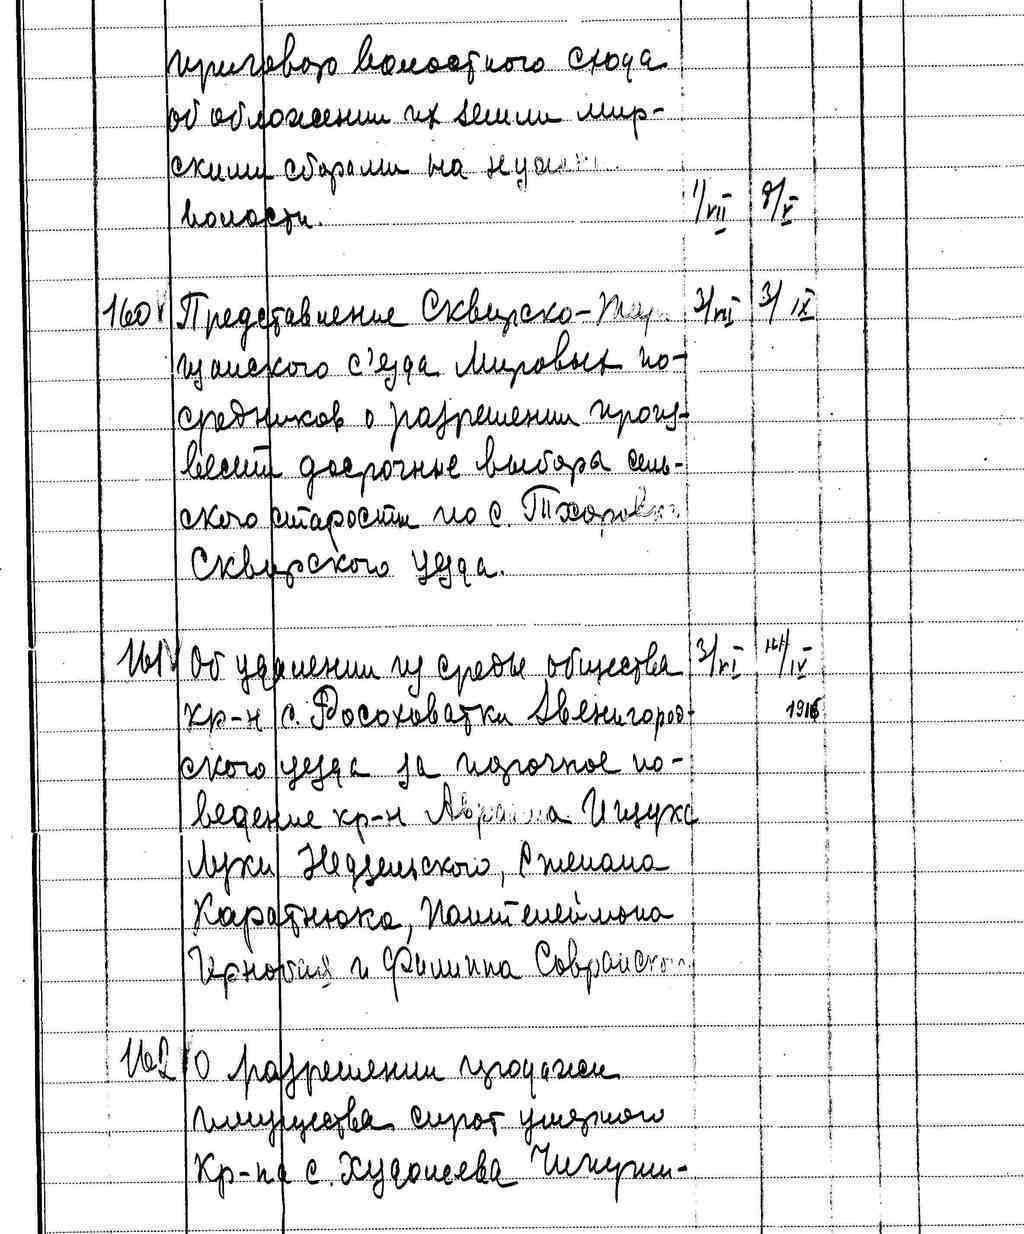 приговор волостного схода
об обложении их земли мир-
скими сборами на
волости. 1/VII 9/X
160 Представление Сквирско-
щанского с'езда Мировых по-
средников о разрешении произ-
вести досрочные выборы сель-
ского старосты по с.
Сквирского уезда. 3/VII 3/IX
161 Об удалении из среды общества 3/VI /IV
кр-н с. Росоховатки Звенигород- 1916
ского уезда за порочное по-
ведение кр-н Авраама Ищука
Луки Недзельского, Степана
Каратнюка, Пантелеймона
и Филиппа
162 О разрешении продажи
имущества сирот умершего
кр-на с.